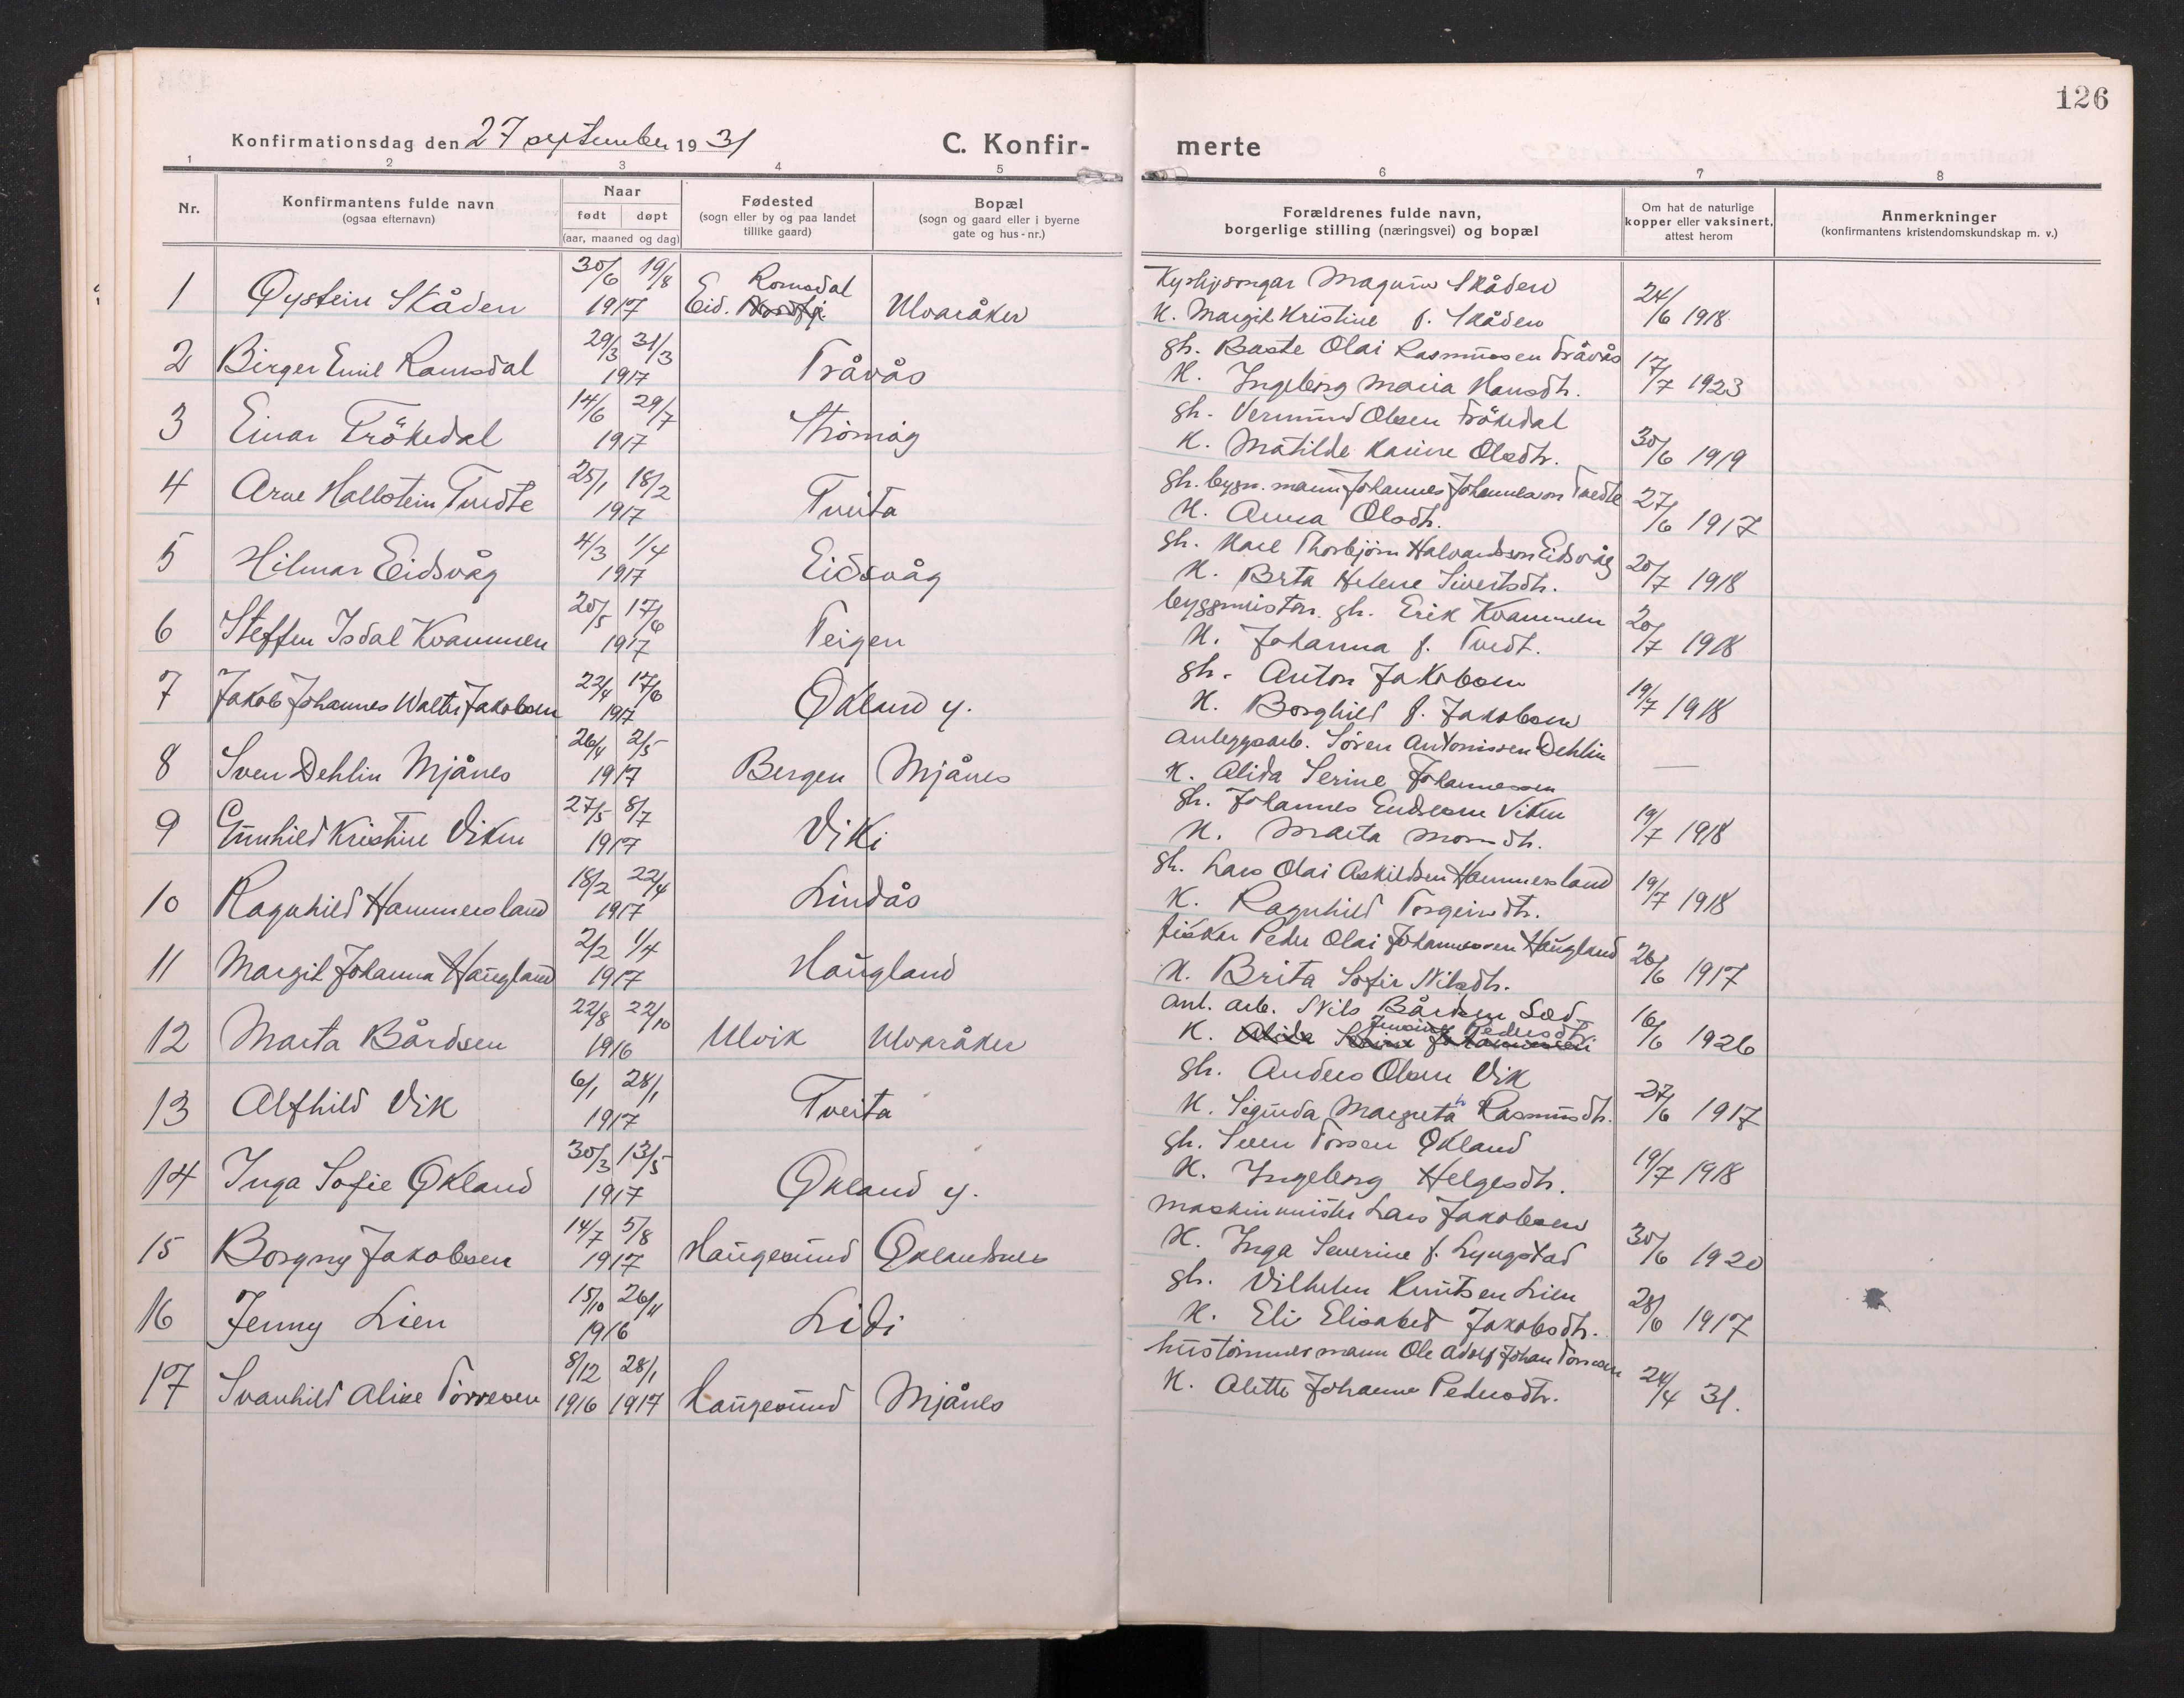 126
Konfirmationsdag den 27 september 1931
C. Konfir-
merte
1 2 3 4 5 6 7 8
Nr.
Konfirmantens fulde navn
(ogsaa efternavn)
Naar
født døpt
(aar, maaned og dag)
Fødested
(sogn eller by og paa landet
tillike gaard)
Bopæl
(sogn og gaard eller i byerne
gate og hus-nr.)
Forældrenes fulde navn,
borgerlige stilling (næringsvei) og bopæl
Om hat de naturlige
kopper eller vaksinert,
attest herom
Anmerkninger
(konfirmantens kristendomskundskap m. v.)
1 Øystein Skåden 30/6 19/8 1917 Eid. Romsdal Ulvaråker
Magnus Skåden
K. Margit Kristine f. Skåden 24/6 1918
2 Birger Emil Ramsdal 29/3 31/3 1917 Tråvås
gh. Baste Olai Rasmussen Tråvås
K. Ingeborg Maria Hansdtr. 17/7 1923
3 Einar Trökedal 14/6 29/7 1917
gh. Vermund Olsen Trökedal
K. Matilde Karine Olsdtr. 30/6 1919
4 Arne Hallstein Tvedte 25/1 18/2 1917 Tveita
gh. bygn. mann Johannes Johannesson Tvedte
K. Anna Olsdtr. 27/6 1917
5 Hilmar Eidsvåg 4/3 1/4 1917 Eidsvåg
gh. Karl Thorbjörn Halvardson Eidsvåg
K. Brta Helene Sivertsdtr. 20/7 1918
6 Steffen Isdal Kvammen 20/5 17/6 1917 Teigen
byggmeister. gh. Erik Kvammen
K. Johanna f. Tvedt. 20/7 1918
7 Jakob Johannes Walter Jakobsen 22/4 17/6 1917 Økland y.
gh. Anton Jakobsen
K. Borghild f. Jakobsen 19/7 1918
8 Sven Dehlin Mjånes 26/4 2/5 1917 Bergen Mjånes
anleggsarb. Sören Antonissen Dehlin
K. Alida Serine Johannessen —
9 Gunhild Kristine Viken 27/5 8/7 1917 Viki
gh. Johannes Endresen Viken
K. Marta Monsdtr. 19/7 1918
10 Ragnhild Hammersland 18/2 22/4 1917 Lindås
gh. Lars Olai Askildsen Hammersland
K. Ragnhild Torgeirsdtr. 19/7 1918
11 Margit Johanna Haugland 2/2 1/4 1917 Haugland
fiskar Peder Olai Johannessen Haugland
K. Brita Sofie Nilsdtr. 26/6 1917
12 Marta Bårdsen 22/8 22/10 1916 Ulvik Ulvaråker
anl. arb. Nils Bårdsen
Jensine Pedersdtr.
K. Alida Serine Johannessen 16/6 1926
13 Alfhild Vik 6/1 28/1 1917 Tveita
gh. Anders Olsen Vik
K. Sigurda Margreta Rasmusdtr. 27/6 1917
14 Inga Sofie Økland 30/3 13/5 1917 Økland y.
gh. Sven Torsen Økland
K. Ingeborg Helgesdtr. 19/7 1918
15 Borgny Jakobsen 14/7 5/8 1917 Haugesund Øklandsnes
maskinmeister Lars Jakobsen
K. Inga Severine f. Lyngstad 30/6 1920
16 Jenny Lien 15/10 26/11 1916 Lidi
gh. Vilhelm Knutsen Lien
K. Eli Elisabed Jakobsdtr. 28/6 1917
17 Svanhild Alise Torresen 8/12 28/1 1916 1917 Haugesund Mjånes
hustömmermann Ole Adolf Johan Torresen
K. Alette Johanne Pedersdtr. 24/4 31.